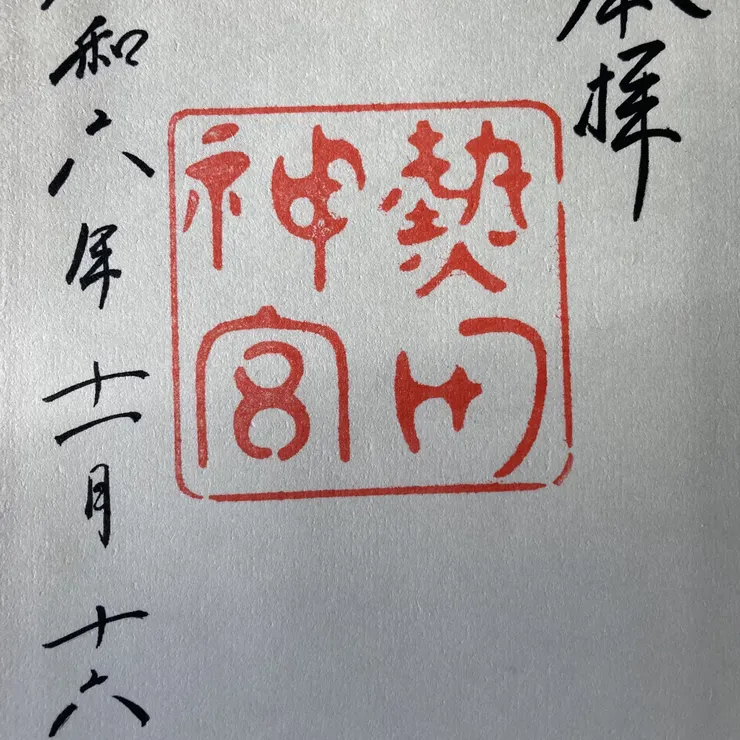 奉拝
熱田
神宮
令和六年十一月十六